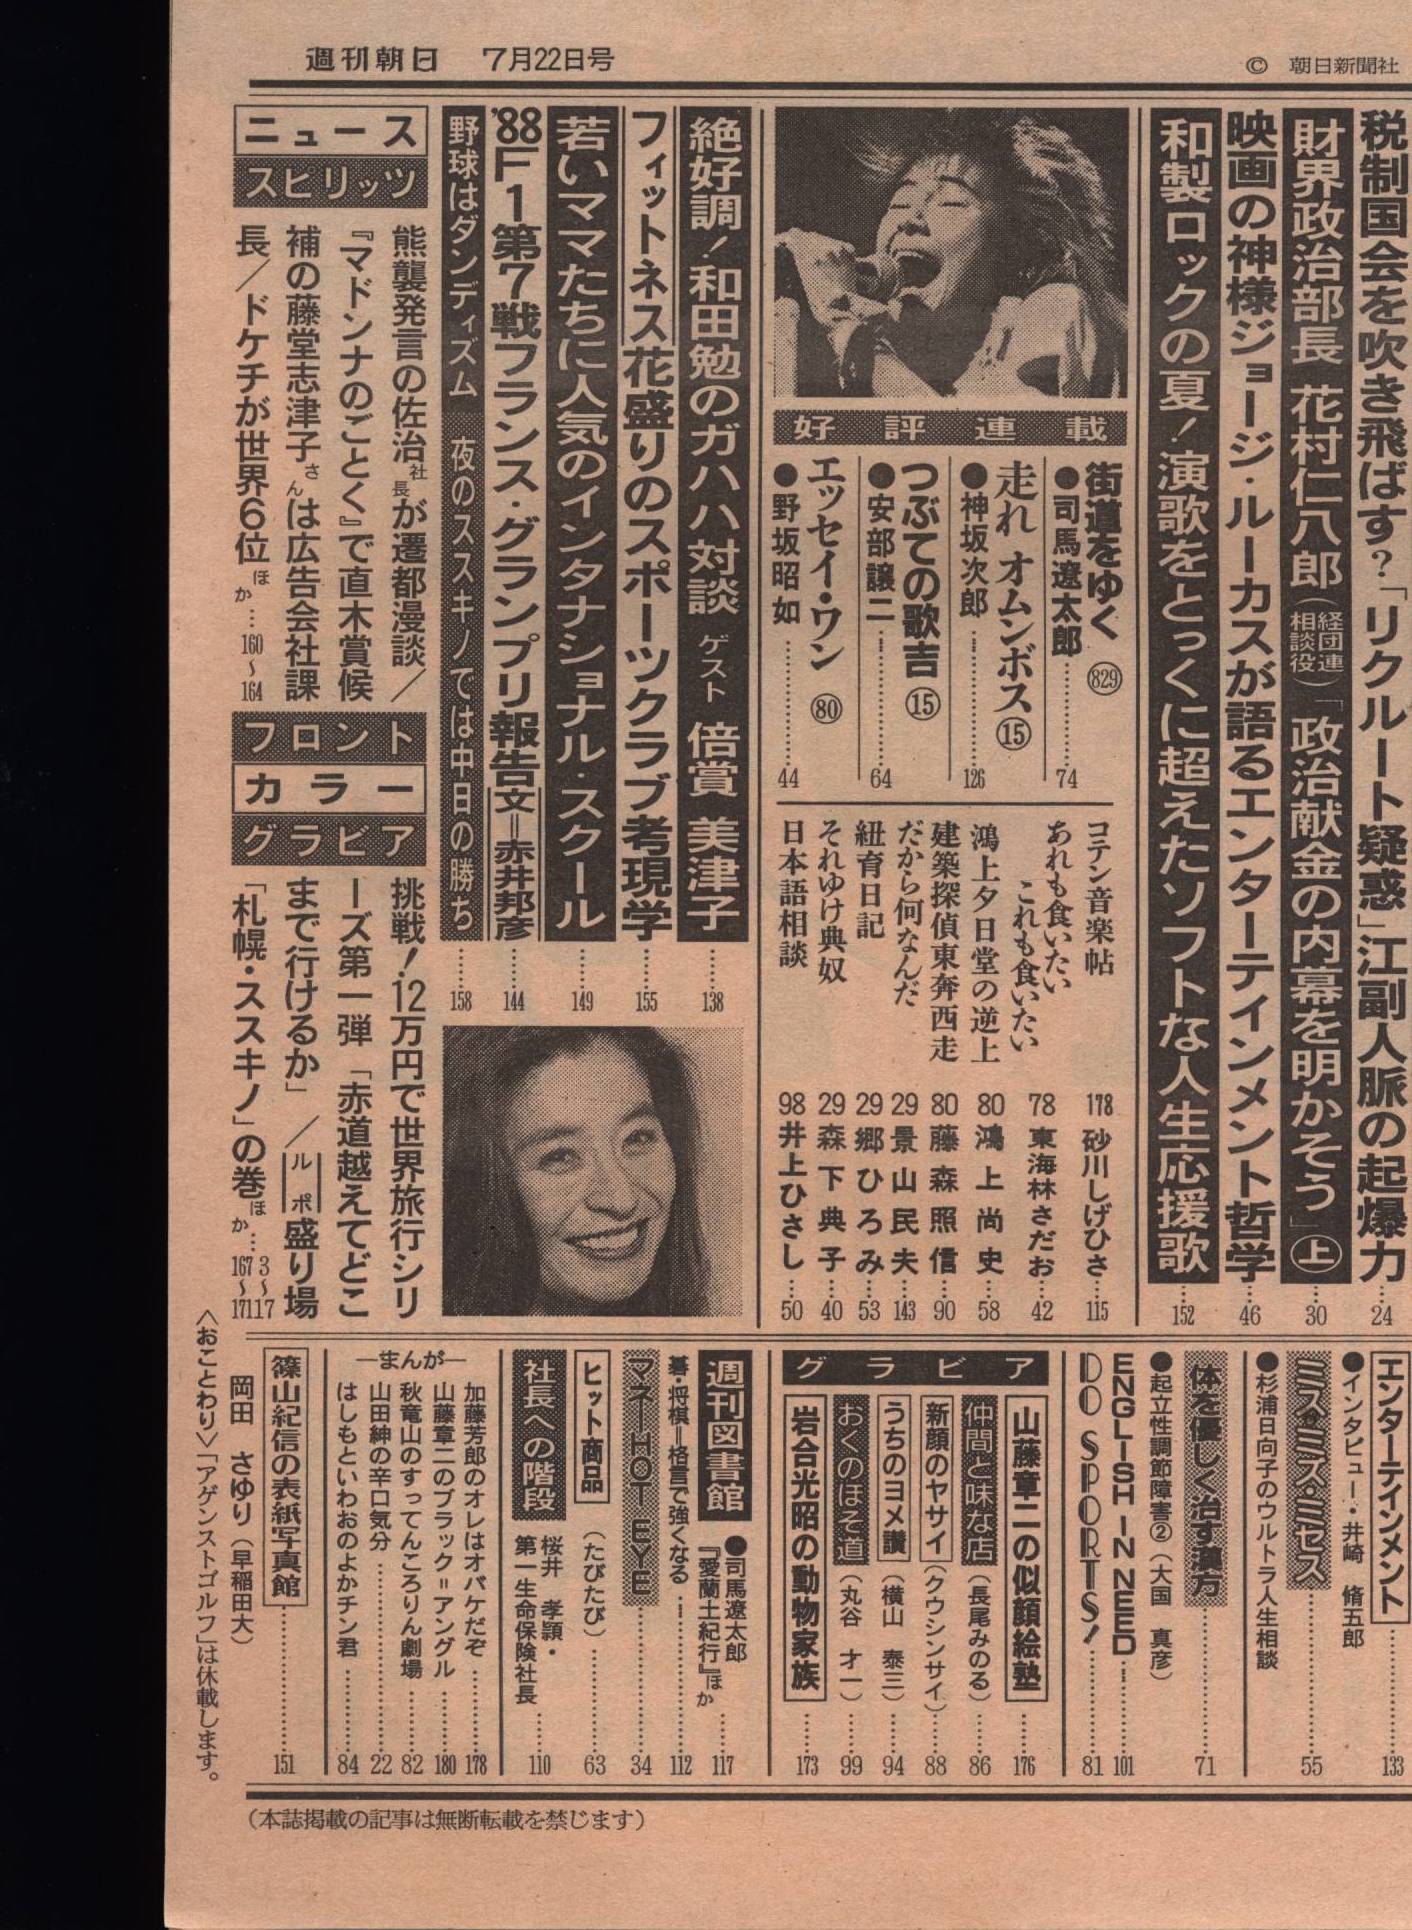 週刊朝日　7月22日号
© 朝日新聞社
税制国会を吹き飛ばす？「リクルート疑惑」江副人脈の起爆力…24
財界政治部長 花村仁八郎（経団連相談役）「政治献金の内幕を明かそう」㊤…30
映画の神様ジョージ・ルーカスが語るエンターテインメント哲学…46
和製ロックの夏！演歌をとっくに超えたソフトな人生応援歌…152
好評連載
街道をゆく 829
●司馬遼太郎……74
走れ オムンボス ⑮
●神坂次郎……126
つぶての歌吉 ⑮
●安部譲二……64
エッセイ・ワン 80
●野坂昭如……44
コテン音楽帖 178 砂川しげひさ…115
あれも食いたい
これも食いたい 78 東海林さだお…42
鴻上夕日堂の逆上 80 鴻上尚史…58
建築探偵東奔西走 80 藤森照信…90
だから何なんだ 29 景山民夫…143
紐育日記 29 郷ひろみ…53
それゆけ典奴 29 森下典子…40
日本語相談 98 井上ひさし…50
絶好調！和田勉のガハハ対談 ゲスト 倍賞 美津子……138
フィットネス花盛りのスポーツクラブ考現学……155
若いママたちに人気のインタナショナル・スクール……149
'88F1第7戦フランス・グランプリ報告 文＝赤井邦彦……144
野球はダンディズム 夜のススキノでは中日の勝ち……158
ニュース
スピリッツ
熊襲発言の佐治社長が遷都漫談／
『マドンナのごとく』で直木賞候
補の藤堂志津子さんは広告会社課
長／ドケチが世界6位ほか…160〜164
フロント
カラー
グラビア
挑戦！12万円で世界旅行シリ
ーズ第一弾「赤道越えてどこ
まで行けるか」／ルポ盛り場
「札幌・ススキノ」の巻ほか…3〜17 167〜171
エンターテインメント……133
●インタビュー・井崎 脩五郎
ミス・ミズ・ミセス……55
●杉浦日向子のウルトラ人生相談
体を優しく治す漢方……71
●起立性調節障害②（大国 真彦）
ENGLISH IN NEED……101
DO SPORTS！……81
グラビア
山藤章二の似顔絵塾……176
仲間と味な店（長尾みのる）……86
新顔のヤサイ（クウシンサイ）……88
うちのヨメ讃（横山 泰三）……94
おくのほそ道（丸谷 才一）……99
岩合光昭の動物家族……173
週刊図書館 ●司馬遼太郎
『愛蘭土紀行』ほか……117
碁・将棋＝格言で強くなる……112
マネーHOT EYE……34
ヒット商品（たびたび）……63
社長への階段 桜井 孝頴・
第一生命保険社長……110
―まんが―
加藤芳郎のオレはオバケだぞ……178
山藤章二のブラック＝アングル……180
秋竜山のすってんころりん劇場……82
山田紳の辛口気分……22
はしもといわおのよかチン君……84
篠山紀信の表紙写真館……151
岡田 さゆり（早稲田大）
〈おことわり〉「アゲンストゴルフ」は休載します。
（本誌掲載の記事は無断転載を禁じます）